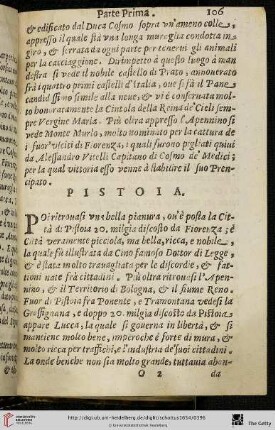 Parte Prima. 106
& edificato dal Duca Cosmo sopra vn'ameno colle,
appresso il quale stà vna longa muraglia condotta in
giro, & serrata da ogni parte per tenerui gli animali
per la cacciaggione. Dirimpetto à questo luogo à man
destra si vede il nobile castello di Prato, annouerato
frà i quatro primi castelli d'Italia, oue si fà il Pane
candidissimo simile alla neue: & vi è conseruata mol-
to honoratamente la Cintola della Reina de' Cieli sem-
pre Vergine Maria. Più oltra appresso l'Apennino si
vede Monte Murlo, molto nominato per la cattura de
i fuor'vsciti di Fiorenza, i quali furono pigliati quiui
da Alessandro Vitelli Capitano di Cosmo de' Medici;
per la qual vittoria esso venne à stabilire il suo Prin-
cipato.
PISTOIA.
Poi ritrouasi vna bella pianura, ou'è posta la Cit-
tà di Pistoia 20. miglia discosto da Fiorenza; è
Città veramente picciola, ma bella, ricca, e nobile,
la quale fù illustrata da Cino famoso Dottor di Legge,
& è stata molto trauagliata per le discordie, & fat-
tioni nate frà cittadini. Più oltra ritrouasi l'Apen-
nino, & il Territorio di Bologna, & il fiume Reno.
Fuor di Pistoia frà Ponente, e Tramontana vedesi la
Graffignana, e doppo 20. miglia discosto da Pistoia
appare Lucca, la quale si gouerna in libertà, & si
mantiene molto bene, imperoche è forte di mura, &
molto ricca per traffichi, e l'industria de' suoi cittadini.
La onde benche non sia molto grande, tuttauia abon-
O 2 da
http://digi.ub.uni-heidelberg.de/diglit/schottus1654/0236
The Getty